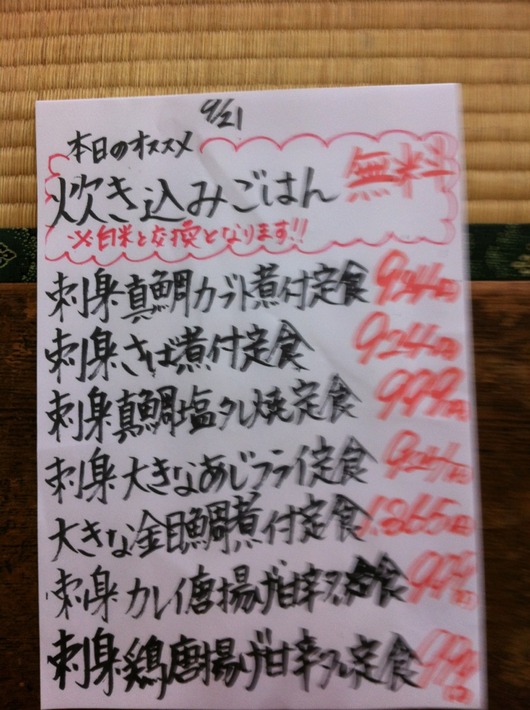 9/21
本日のオススメ
炊き込みごはん 無料
※白米と交換となります!!
刺身真鯛カブト煮付定食 924円
刺身さば煮付定食 924円
刺身真鯛塩タレ焼定食 999円
刺身大きなあじフライ定食 924円
大きな金目鯛煮付定食 1.265円
刺身カレイ唐揚げ甘辛タレ定食
刺身鶏唐揚げ甘辛タレ定食